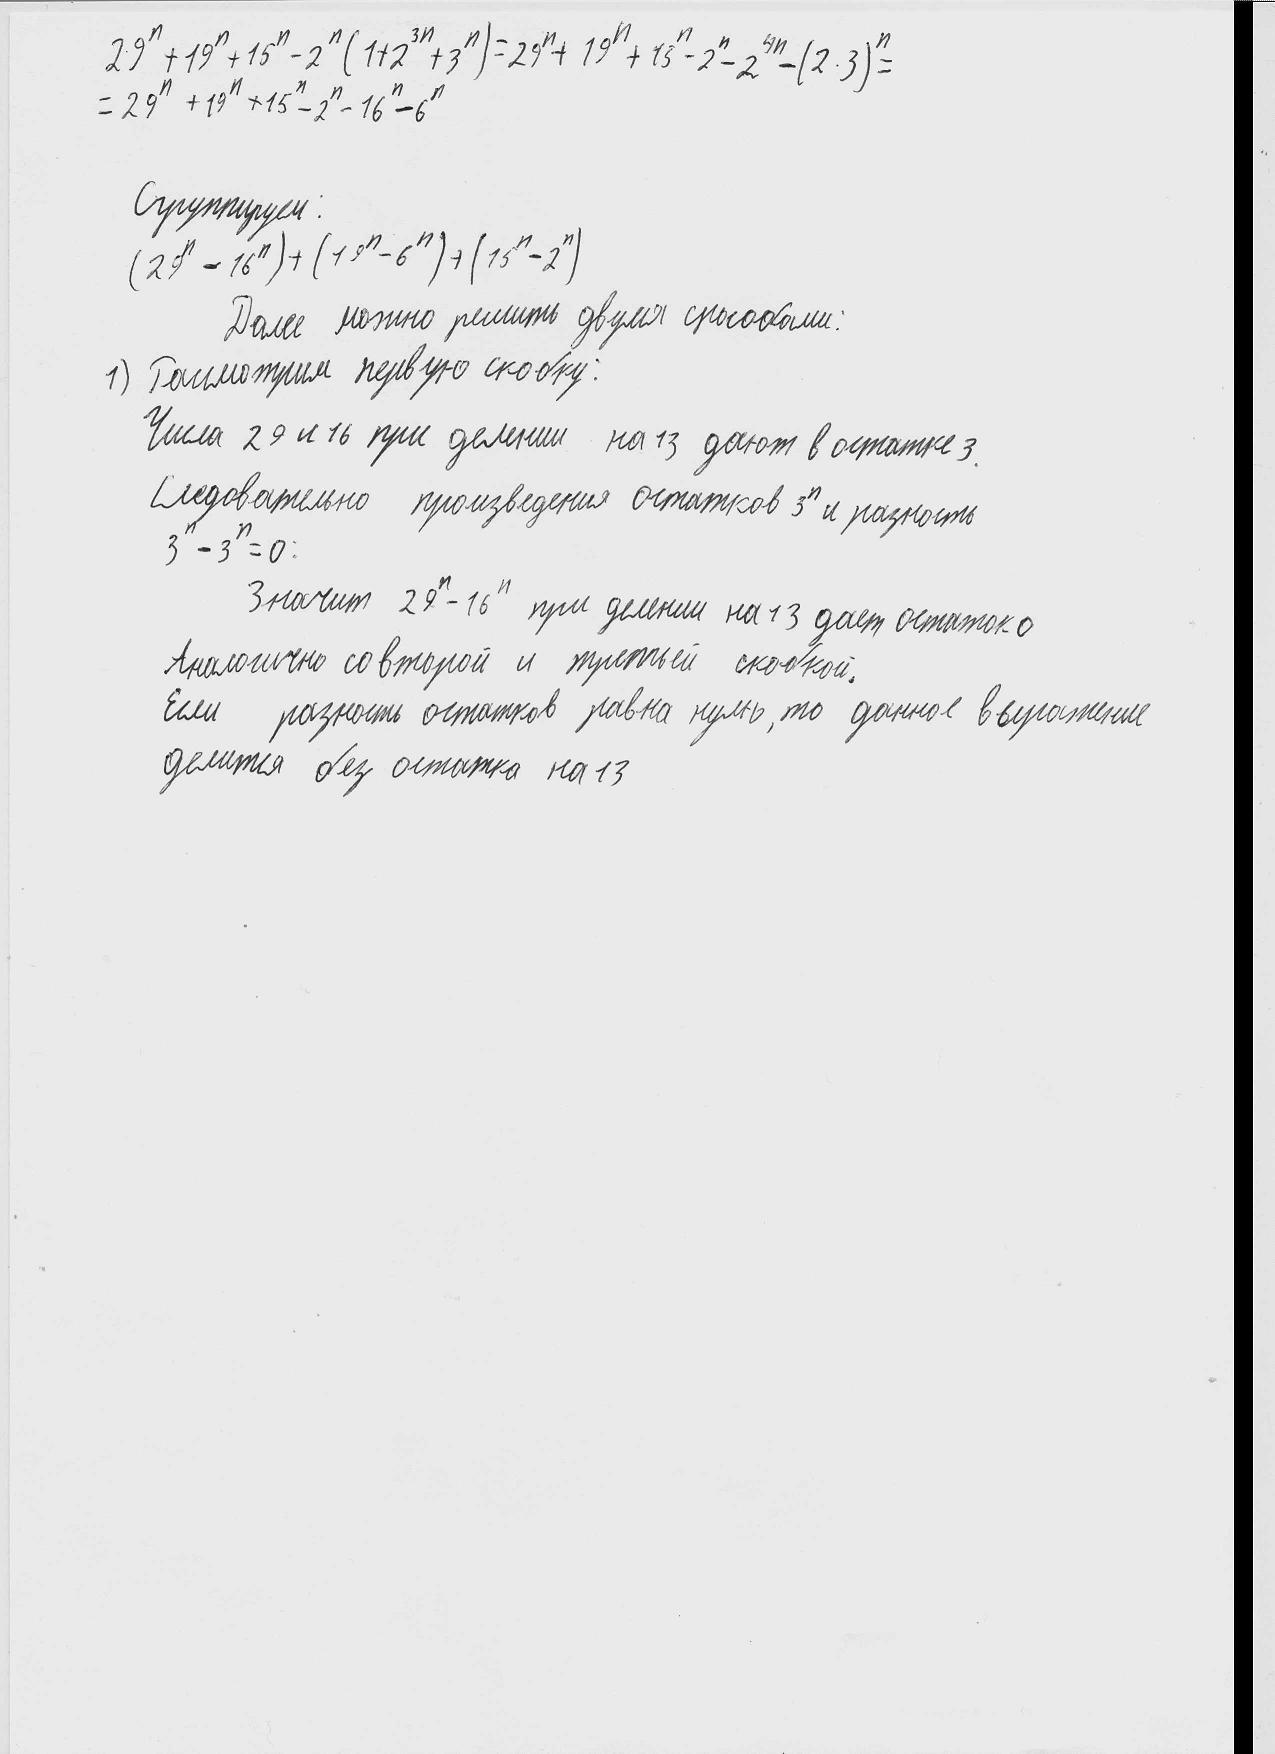 29ⁿ + 19ⁿ + 15ⁿ - 2ⁿ (1 + 2³ⁿ + 3ⁿ) = 29ⁿ + 19ⁿ + 15ⁿ - 2ⁿ - 2⁴ⁿ - (2·3)ⁿ =
= 29ⁿ + 19ⁿ + 15ⁿ - 2ⁿ - 16ⁿ - 6ⁿ
Сгруппируем:
(29ⁿ - 16ⁿ) + (19ⁿ - 6ⁿ) + (15ⁿ - 2ⁿ)
Далее можно решить двумя способами:
1) Посмотрим первую скобку:
Числа 29 и 16 при делении на 13 дают в остатке 3.
Следовательно произведения остатков 3ⁿ и разность
3ⁿ - 3ⁿ = 0:
Значит 29ⁿ - 16ⁿ при делении на 13 дает остаток 0
Аналогично со второй и третьей скобкой.
Если разность остатков равна нулю, то данное выражение
делится без остатка на 13